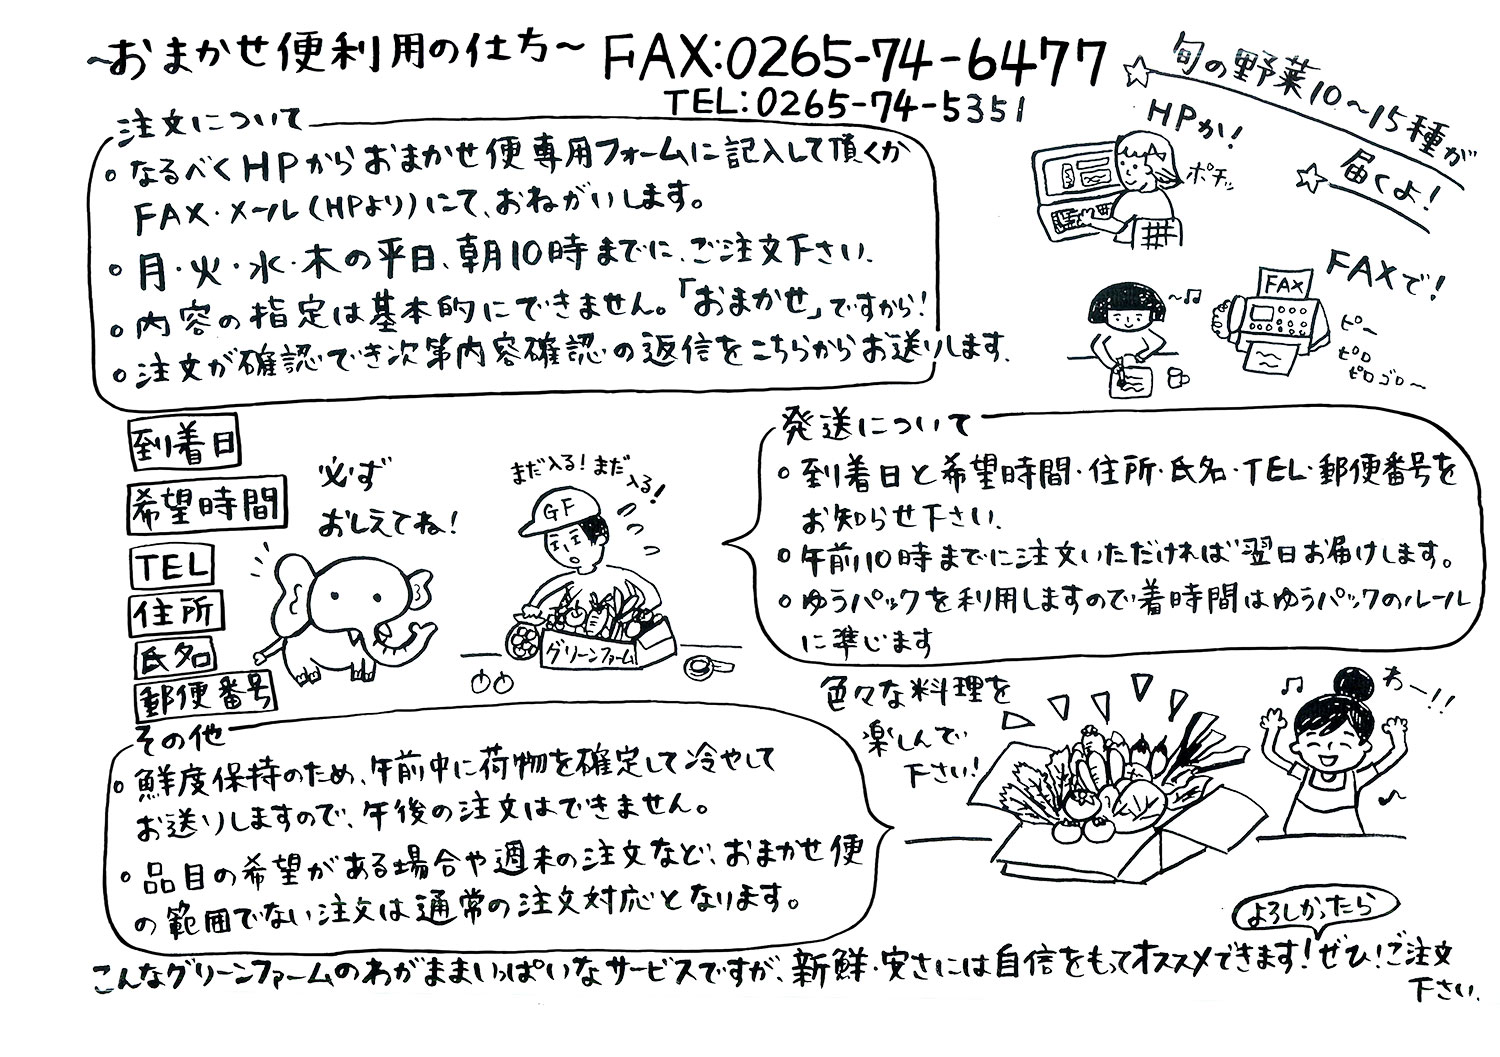 ~おまかせ便利用の仕方~
FAX:0265-74-6477
TEL:0265-74-5351
旬の野菜10~15種が
届くよ!
注文について
○なるべくHPからおまかせ便専用フォームに記入して頂くか
FAX・メール(HPより)にて、おねがいします。
○月・火・水・木の平日、朝10時までに、ご注文下さい.
○内容の指定は基本的にできません。「おまかせ」ですから!
○注文が確認でき次第内容確認の返信をこちらからお送りします.
HPか!
ポチッ
FAXで!
FAX
~♫
ピ~
ピロ
ピロゴロ~
到着日
希望時間
TEL
住所
氏名
郵便番号
必ず
おしえてね!
まだ入る!まだ
入る!
GF
グリーンファーム
発送について
○到着日と希望時間・住所・氏名・TEL・郵便番号を
お知らせ下さい.
○午前10時までに注文いただければ翌日お届けします。
○ゆうパックを利用しますので着時間はゆうパックのルール
に準じます
その他
○鮮度保持のため、午前中に荷物を確定して冷やして
お送りしますので、午後の注文はできません。
○品目の希望がある場合や週末の注文など、おまかせ便
の範囲でない注文は通常の注文対応となります。
色々な料理を
楽しんで
下さい!
♫
わー!!
よろしかったら
こんなグリーンファームのわがままいっぱいなサービスですが、新鮮・安さには自信をもってオススメできます!ぜひ!ご注文
下さい.